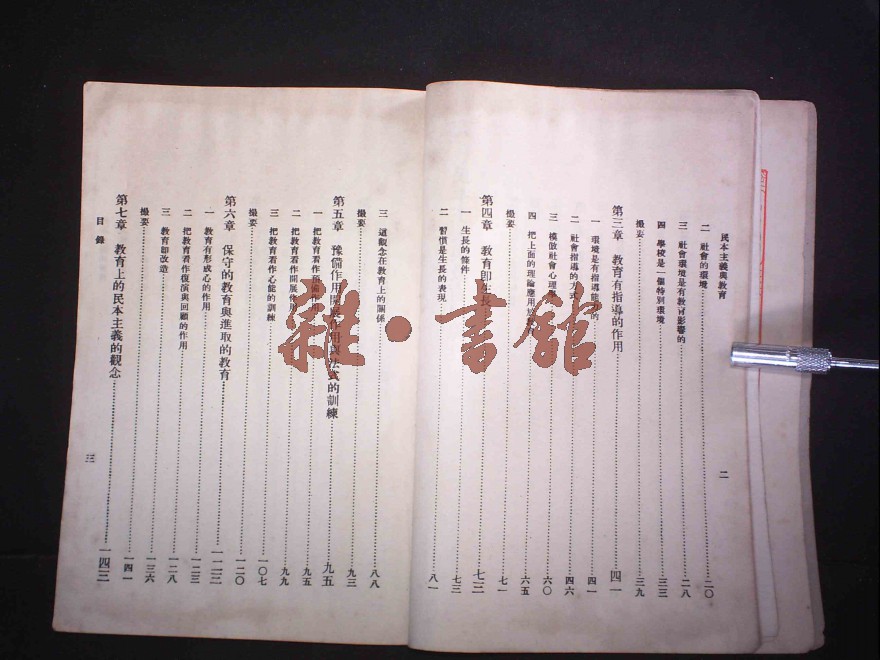 民本主義與教育
二 社會的環境 二〇
三 社會環境是有教育影響的 二八
四 學校是一個特別環境 三三
撮要 三九
第三章 教育有指導的作用 四一
一 環境是有指導能 的 四一
二 社會指導的方式 四六
三 模倣社會心理 六〇
四 把上面的理論應用 六五
撮要 七一
第四章 教育即生長 七三
一 生長的條件 七三
二 習慣是生長的表現 八一
二
三 這觀念在教育上的關係 八八
撮要 九三
第五章 豫備作用開展作用與法式的訓練 九五
一 把教育看作預備 用 九五
二 把教育看作開展作用 九九
三 把教育看作心能的訓練 一〇七
撮要 一二〇
第六章 保守的教育與進取的教育 一二三
一 教育有形成心的作用 一二三
二 把教育看作復演與回顧的作用 一二八
三 教育卽改造 一三六
撮要 一四一
第七章 教育上的民本主義的觀念 一四三
目錄
三
雜·書館